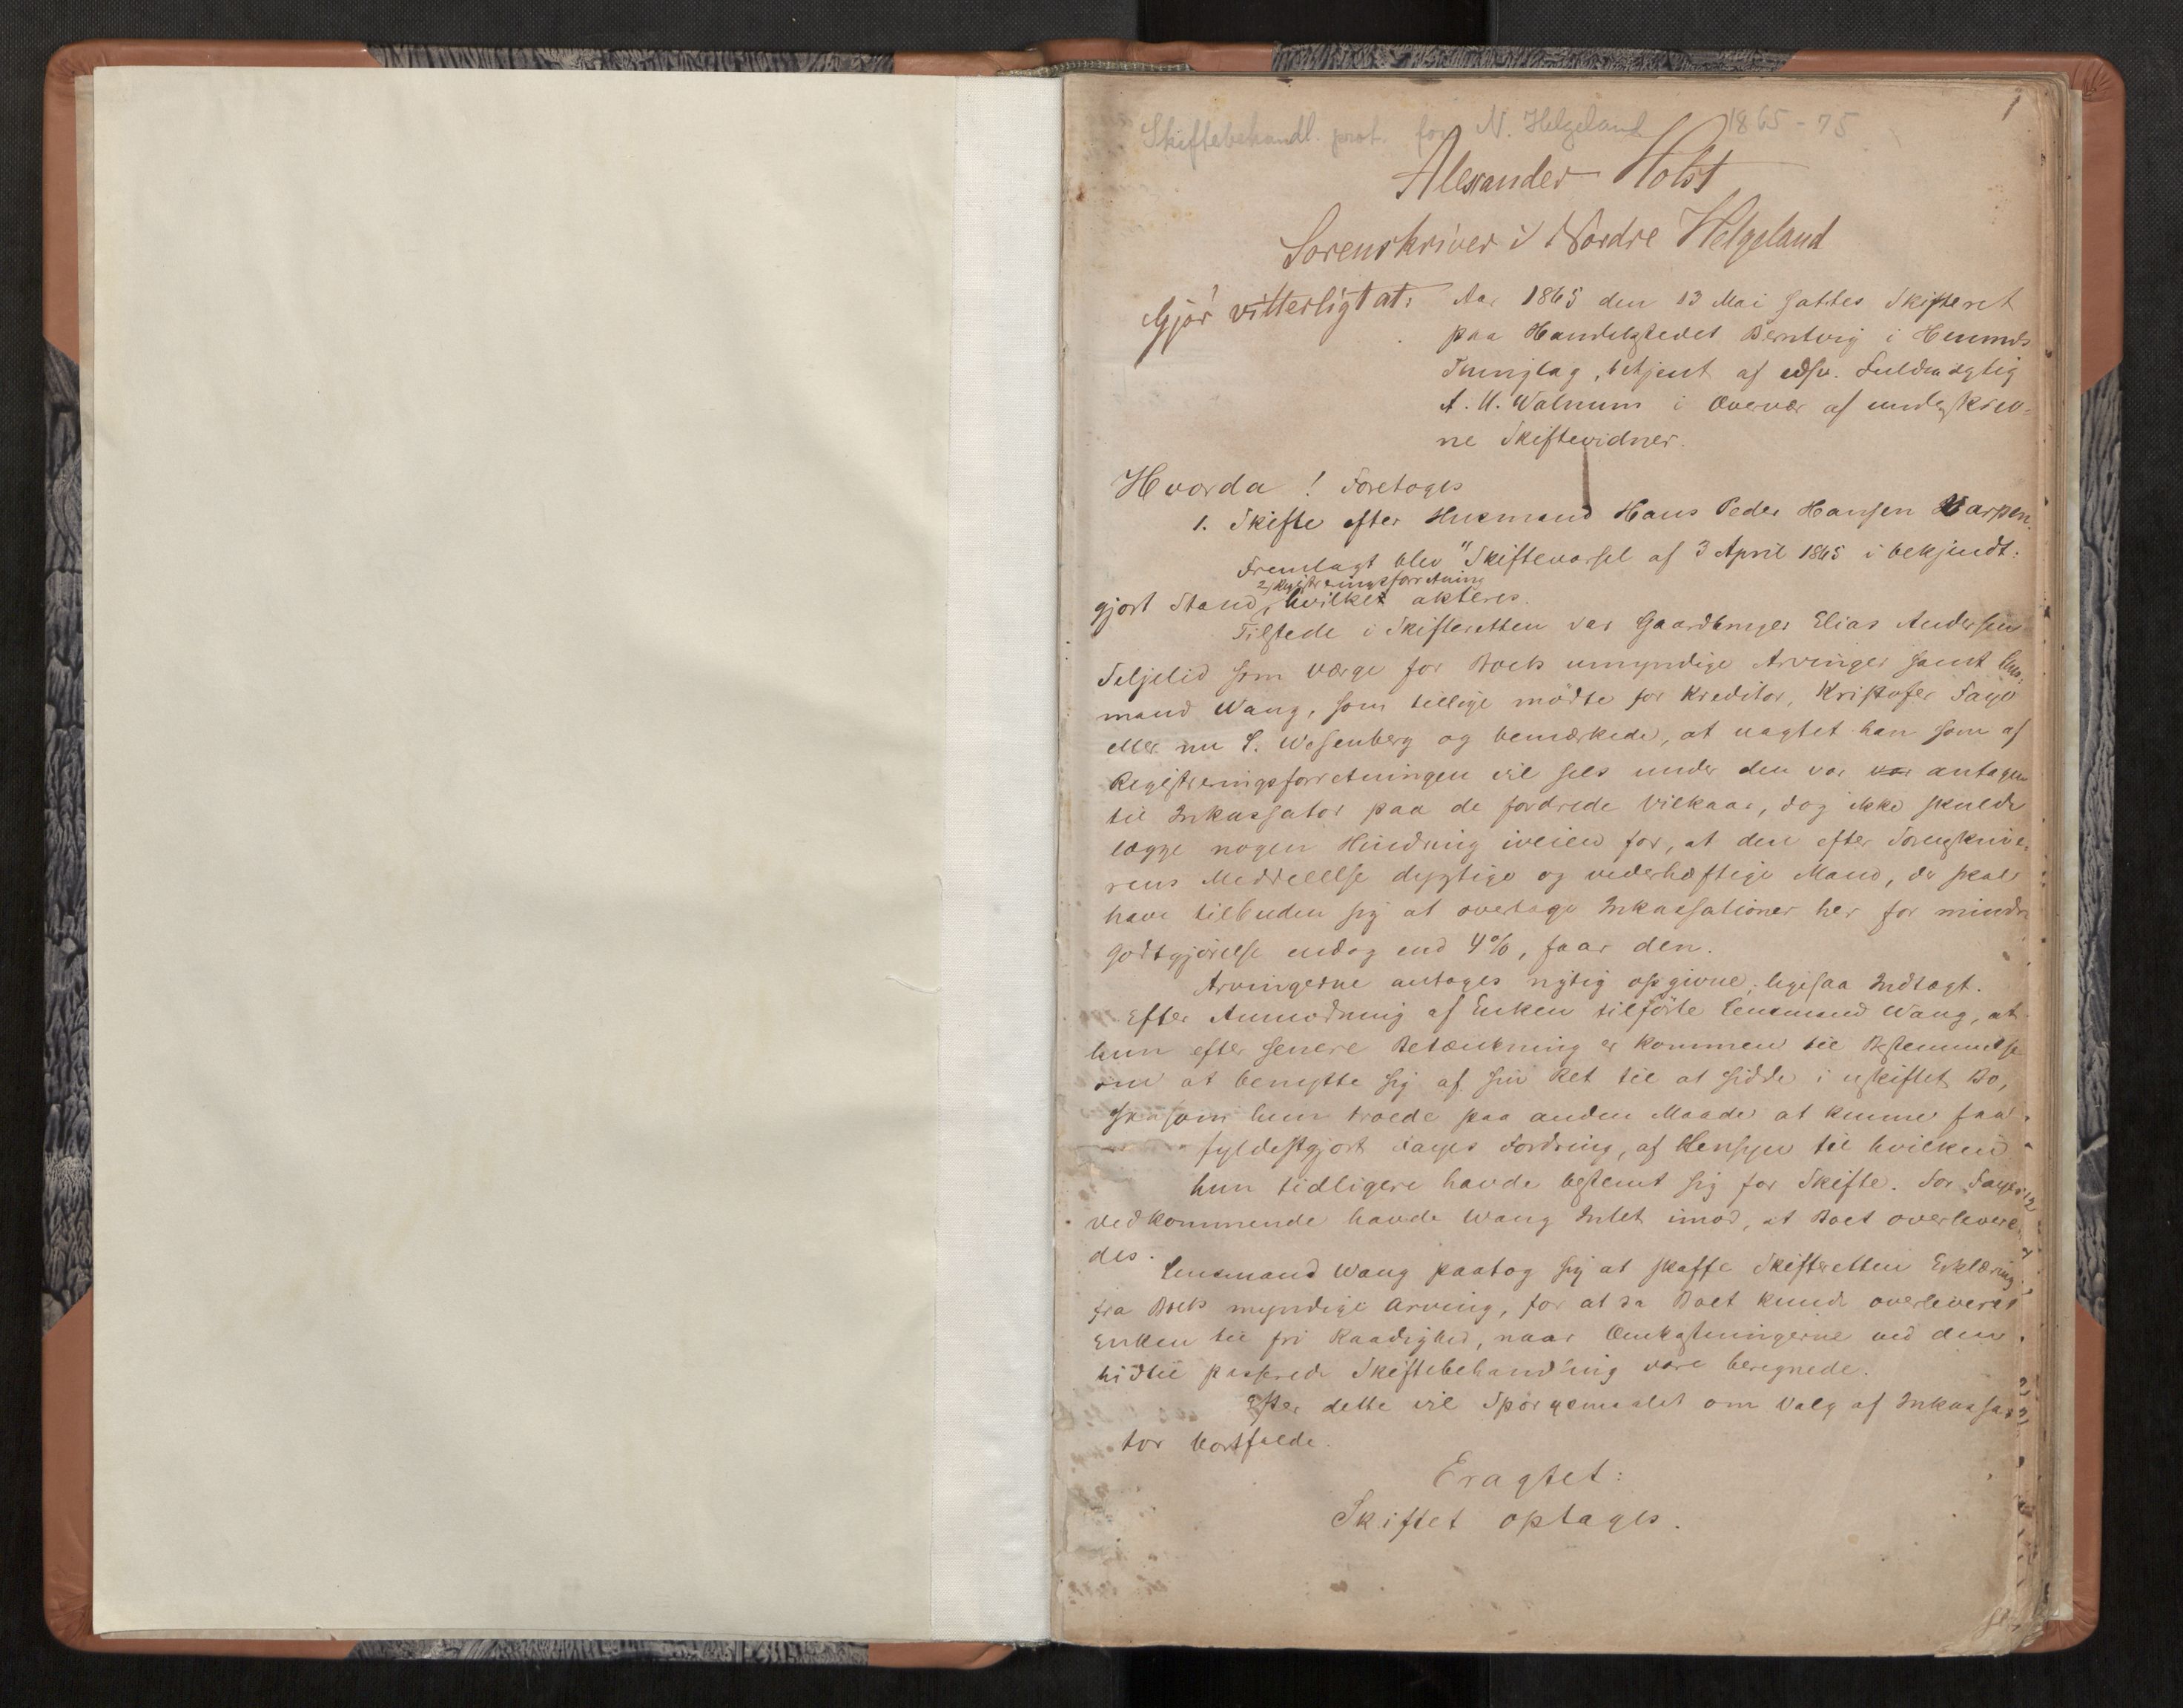 1
Skiftebehandl. prot. for N. Helgeland 1865-75
Alexander Holst
Sorenskriver i Nordre Helgeland
Gjör vitterligt at:
Aar 1865 den 13 Mai sattes Skifteret
paa Handelsstedet Berntvig i Hemnæs
Thinglag, betjent af edsv. Fuldmægtig
A. U. Walnum i Overvær af underskrev-
ne Skiftevidner.
Hvorda! Foretoges
1. Skifte efter Husmand Hans Peder Hansen Varpen.
Fremlagt blev "Skiftevarsel af 3 April 1865 i bekjendt-
2, Registreringsforretning
gjort Stand, hvilket akteres.
Tilstede i Skifteretten var Gaardbruger Elias Andersen
Seljelid som Værge for Boets umyndige Arvinger samt Lens-
mand Wang, som tillige mödte for Kreditor, Kristofer
eller nu C. Wesenberg og bemærkede, at uagtet han som af
Registreringsforretningen vil sees under den var var antagen
til Inkassator paa de fordrede Vilkaar, dog ikke skulde
lægge nogen Hindring iveien for, at den efter Sorenskrive-
rens Meddelelse dygtige og vederhæftige Mand, der skal
have tilbuden sig at overtage Inkassationer her for mindre
Godtgjörelse endog end 4%, faar den.
Arvingerne antages rigtig opgivne, ligesaa Indtægt.
Efter Anmodning af Enken tilförte Lensmand Wang, at
hun efter senere Betænkning er kommen til Bestemmelse
om at benytte sig af sin Ret til at sidde i uskiftet Bo,
saasom hun troede paa anden Maade at kunne faa
fyldestgjort Fordring, af Hensyn til hvilken
hun tidligere havde bestemt sig for Skifte. For
vedkommende havde Wang Intet imod, at Boet overlevere-
des.
Lensmand Wang paatog sig at skaffe Skifteretten Erklæring
fra Boets myndige Arving, for at da Boet kunde overleveres
Enken til fri Raadighed, naar Omkostningerne ved den
hidtil passerede Skiftebehandling vare beregnede.
Efter dette vil Spörgsmaalet om Valg af Inkassa-
tor bortfalde.
Eragtet:
Skiftet optages.